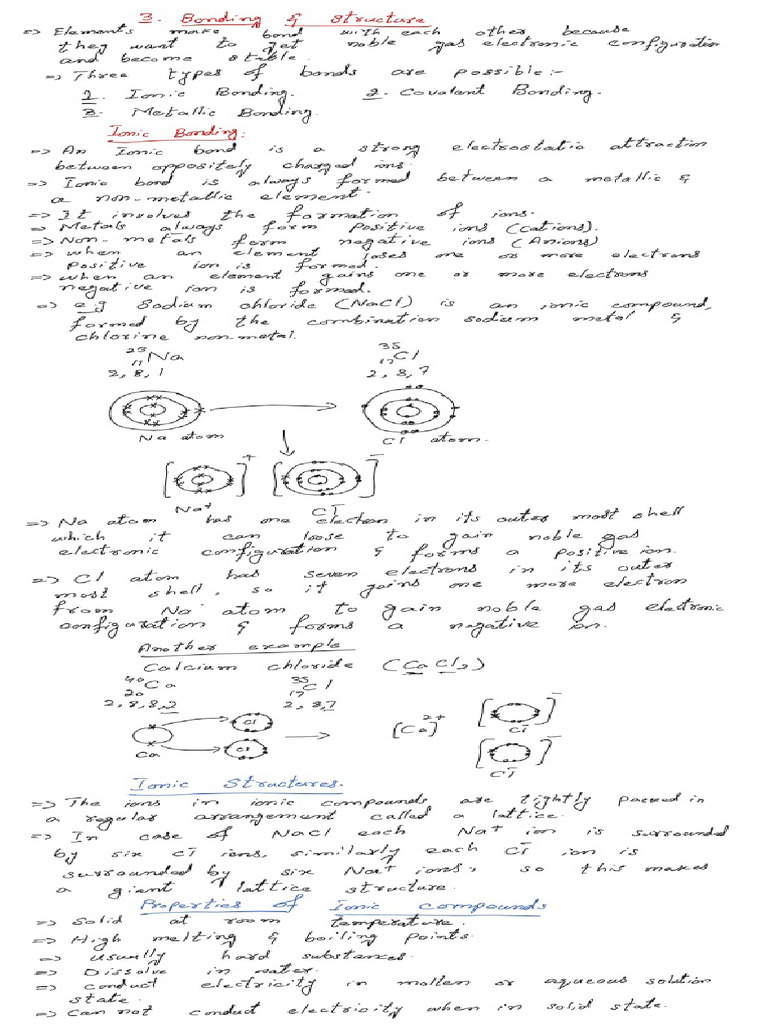 3. Bonding & Structure
=> Elements make bond with each other because
they want to get noble gas electronic configuration
and become stable.
=> Three types of bonds are possible:-
1. Ionic Bonding. 2. Covalent Bonding.
3. Metallic Bonding.
Ionic Bonding:
=> An Ionic bond is a strong electrostatic attraction
between oppositely charged ions.
=> Ionic bond is always formed between a metallic &
a non-metallic element.
=> It involves the formation of ions.
=> Metals always form positive ions (Cations).
=> Non-metals form negative ions (Anions)
=> when an element loses one or more electrons
positive ion is formed.
=> when an element gains one or more electrons
negative ion is formed.
=> e.g Sodium chloride (NaCl) is an ionic compound,
formed by the combination sodium metal &
chlorine non-metal.
23 11 Na 35 17 Cl
2,8,1 2,8,7
Na atom Cl atom.
+ -
Na+ Cl-
=> Na atom has one electron in its outer most shell
which it can loose to gain noble gas
electronic configuration & forms a positive ion.
=> Cl atom has seven electrons in its outer
most shell, so it gains one more electron
from Na atom to gain noble gas electronic
configuration & forms a negative ion.
Another example
Calcium chloride (CaCl2)
40 20 Ca 35 17 Cl
2,8,8,2 2,8,7
Cl [Ca]2+ -
Cl-
Ca Cl -
Cl-
Ionic Structures.
=> The ions in ionic compounds are tightly packed in
a regular arrangement called a lattice.
=> In case of NaCl each Na+ ion is surrounded
by six Cl- ions, similarly each Cl- ion is
surrounded by six Na+ ions, so this makes
a giant lattice structure.
Properties of Ionic compounds
=> Solid at room temperature.
=> High melting & boiling points.
=> usually hard substances.
=> Dissolve in water.
=> conduct electricity in molten or aqueous solution
state.
=> Can not conduct electricity when in solid state.